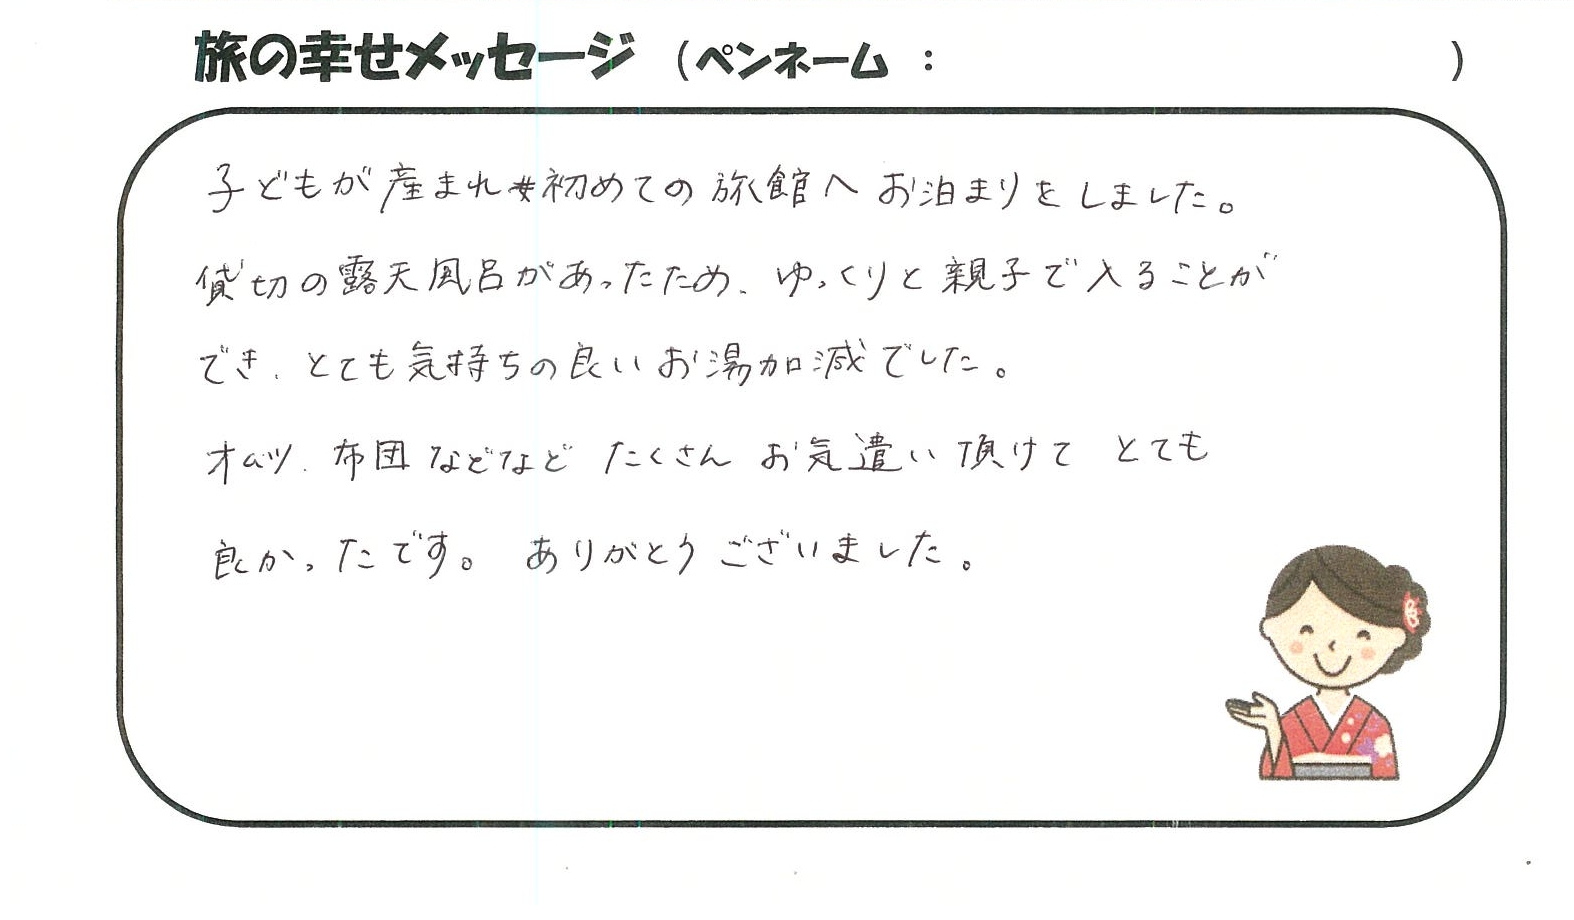 旅の幸せメッセージ (ペンネーム : )
子どもが産まれ初めての旅館へお泊まりをしました。
貸切の露天風呂があったため、ゆっくりと親子で入ることが
でき、とても気持ちの良いお湯加減でした。
オムツ、布団などなど たくさん お気遣い頂けて とても
良かったです。 ありがとうございました。